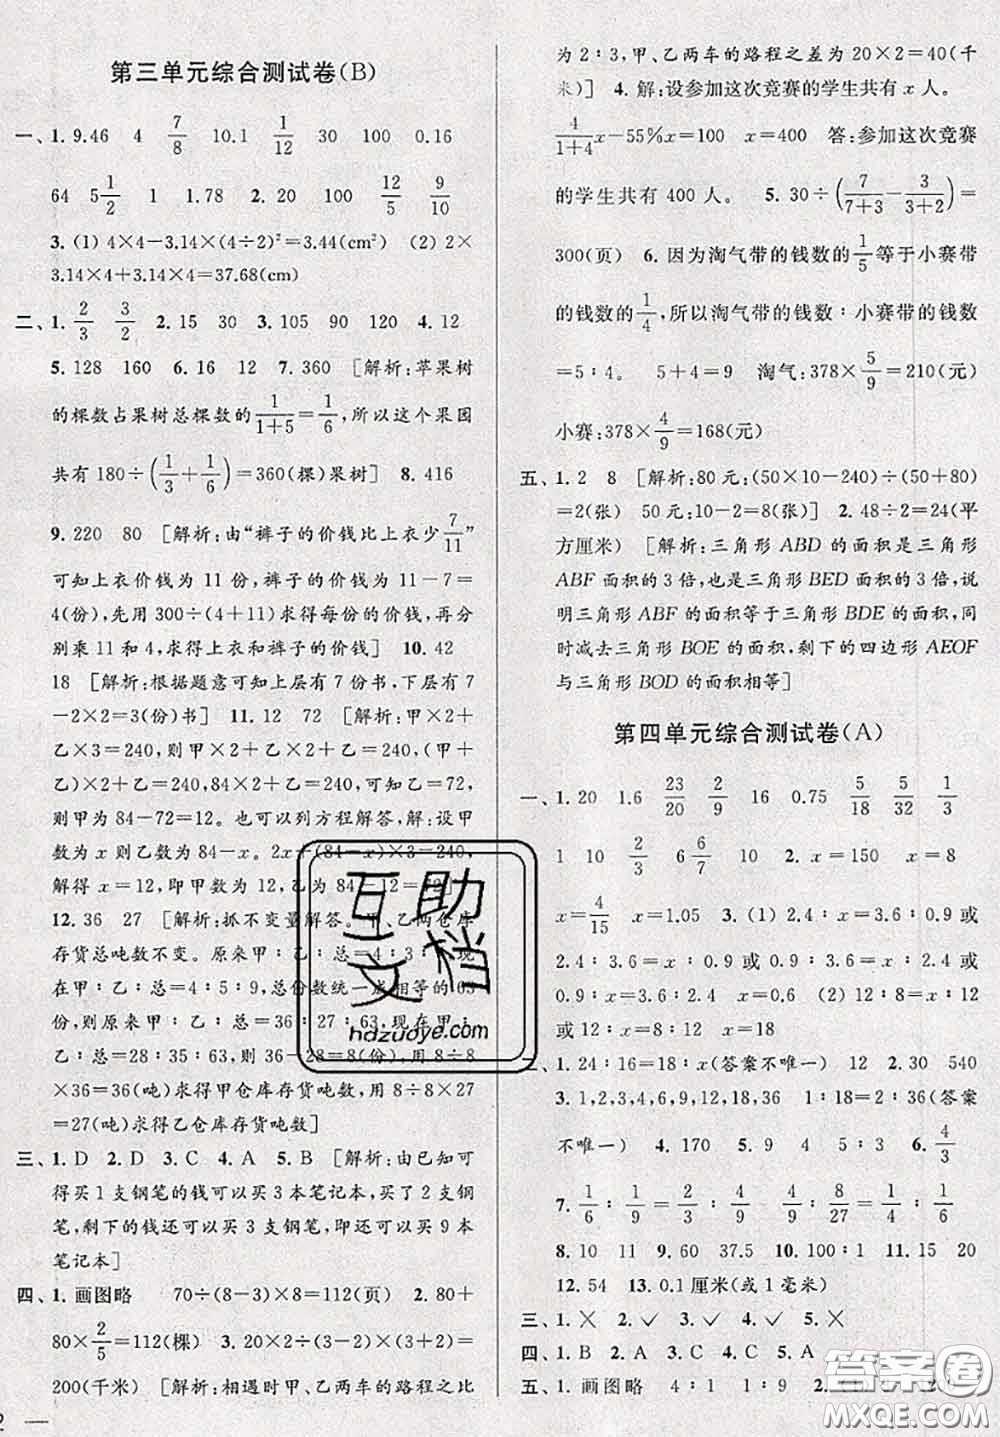 第三单元综合测试卷(B)
一、1. 9.46　4　7/8　10.1　1/12　30　100　0.16
64　5 1/2　1　1.78　2. 20　100　12/5　9/10
3. (1) 4×4−3.14×(4÷2)²=3.44(cm²)　(2) 2×
3.14×4+3.14×4=37.68(cm)
二、1. 2/3　3/2　2. 15　30　3. 105　90　120　4. 12
5. 128　160　6. 16　12　7. 360　[解析:苹果树
的棵数占果树总棵数的1/(1+5)=1/6,所以这个果园
共有 180÷(1/3+1/6)=360(棵)果树]　8. 416
9. 220　80　[解析:由“裤子的价钱比上衣少7/11”
可知上衣价钱为 11 份,裤子的价钱为 11−7=
4(份),先用 300÷(4+11)求得每份的价钱,再分
别乘 11 和 4,求得上衣和裤子的价钱]　10. 42
18　[解析:根据题意可知上层有 7 份书,下层有 7
−2×2=3(份)书]　11. 12　72　[解析:甲×2+
乙×3=240,则甲×2+乙×2+乙=240,(甲+
乙)×2+乙=240,84×2+乙=240,可知乙=72,
甲=84−72=12。也可以列方程解答,解:设甲
数为 x 则乙数为 84−x。2x+(84−x)×3=240,
解得 x=12,即甲数为 12,乙为 84−12=72]
12. 36　27　[解析:抓不变量解答。甲、乙两仓库
存货总吨数不变。原来甲∶乙∶总=4∶3∶7,现
在甲∶乙∶总=4∶5∶9,总份数统一成相等的 63
份,原来甲∶乙∶总=36∶27∶63,现在甲∶乙
∶总=28∶35∶63,36−28=8(份),用 8÷8
×36=36(吨)求得甲仓库存货吨数,用 8÷8×27
=27(吨)求得乙仓库存货吨数]
三、1. D　2. D　3. C　4. A　5. B　[解析:由已知可
得买 1 支钢笔的钱可以买 3 本笔记本,买了 2 支钢
笔,剩下的钱还可以买 3 支钢笔,即还可以买 9 本
笔记本]
四、1. 画图略　70÷(8−3)×8=112(页)　2. 80+
80×2/5=112(棵)　3. 20×2÷(3−2)×(3+2)=
200(千米)　[解析:相遇时甲、乙两车的路程之比
2
为 2∶3,甲、乙两车的路程之差为 20×2=40(千
米)]　4. 解:设参加这次竞赛的学生共有 x 人。
4/(1+4)x−55%x=100　x=400　答:参加这次竞赛
的学生共有 400 人。　5. 30÷(7/(7+3)−3/(3+2))=
300(页)　6. 因为淘气带的钱数的1/5等于小赛带
的钱数的1/4,所以淘气带的钱数∶小赛带的钱数
=5∶4。　5+4=9　淘气:378×5/9=210(元)
小赛:378×4/9=168(元)
五、1. 2　8　[解析:80 元:(50×10−240)÷(50+80)
=2(张)　50 元:10−2=8(张)]　2. 48÷2=24(平
方厘米)　[解析:三角形 ABD 的面积是三角形
ABF 面积的 3 倍,也是三角形 BED 面积的 3 倍,说
明三角形 ABF 的面积等于三角形 BDE 的面积,同
时减去三角形 BOE 的面积,剩下的四边形 AEOF
与三角形 BOD 的面积相等]
第四单元综合测试卷(A)
一、1. 20　1.6　23/20　2/9　16　0.75　5/18　5/32　1/3
1　10　2/3　6 6/7　10　2. x=150　x=80
x=4/15　x=1.05　3. (1) 2.4∶x=3.6∶0.9 或
2.4∶3.6=x∶0.9 或 0.9∶x=3.6∶2.4 或
0.9∶3.6=x∶2.4　x=0.6　(2) 12∶8=x∶12
或 12∶x=8∶12　x=18
二、1. 24∶16=18∶x(答案不唯一)　12　2. 30　540
3. 1,2,3,4,6,9,12,18,36　1∶18=2∶36(答案
不唯一)　4. 170　5. 9　4　5　2　6. 4/3
7. 1/6∶1/9=2/3∶4/9　8/9∶8/27=1/4∶1/6
8. 10　11　9. 60　37.5　10. 100∶1　11. 15　20
12. 54　13. 0.1 厘米(或 1 毫米)
三、1. ×　2. ✓　3. ✓　4. ✓　5. ×
四、1. B　2. A　3. B　4. C　5. A
五、1. 画图略　4∶1　1∶9　2.
互助文档
hdzuoye.com
答案圈
MXQE.COM